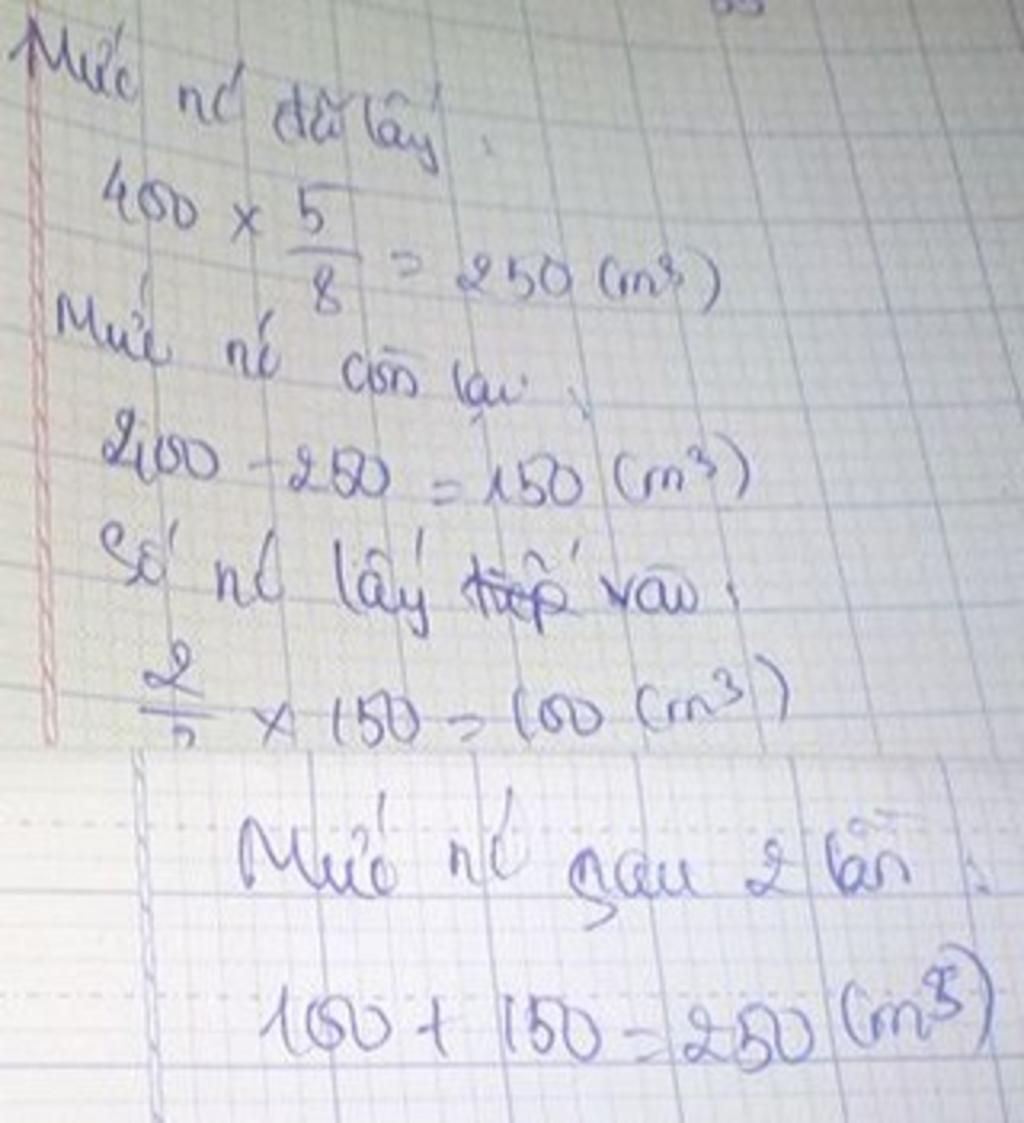 Mức nc đã lấy :
400 × 5/8 = 250 (m³)
Mức nc còn lại :
400 - 250 = 150 (m³)
Số nc lấy tiếp vào :
2/3 × 150 = 100 (m³)
Mức nc sau 2 lần :
100 + 150 = 250 (m³)